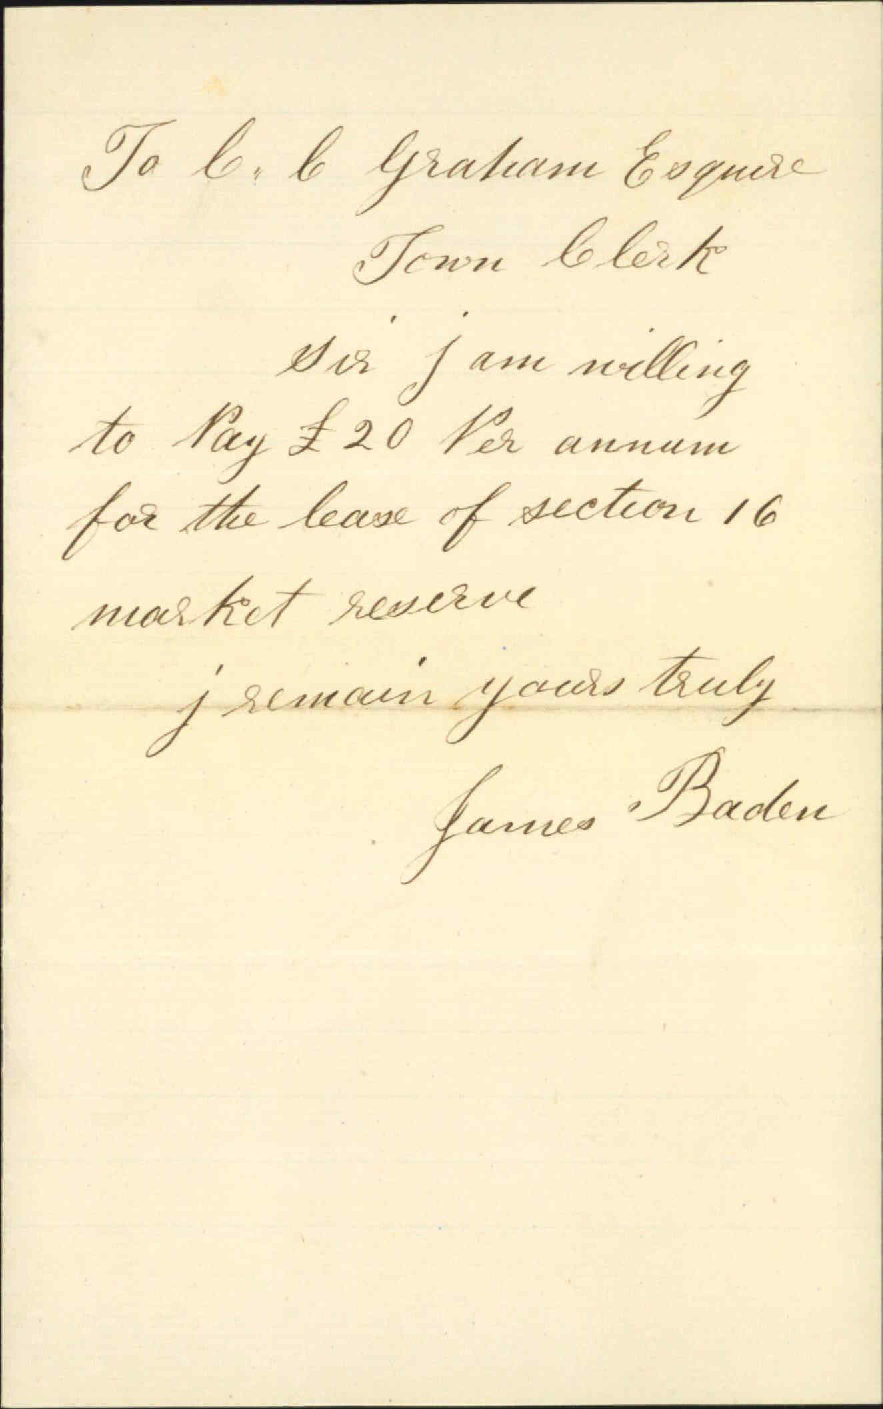 To C. C Graham Esquire
Town Clerk
Sir j am willing
to Pay £20 Per annum
for the lease of section 16
market reserve
j remain yours truly
James Baden